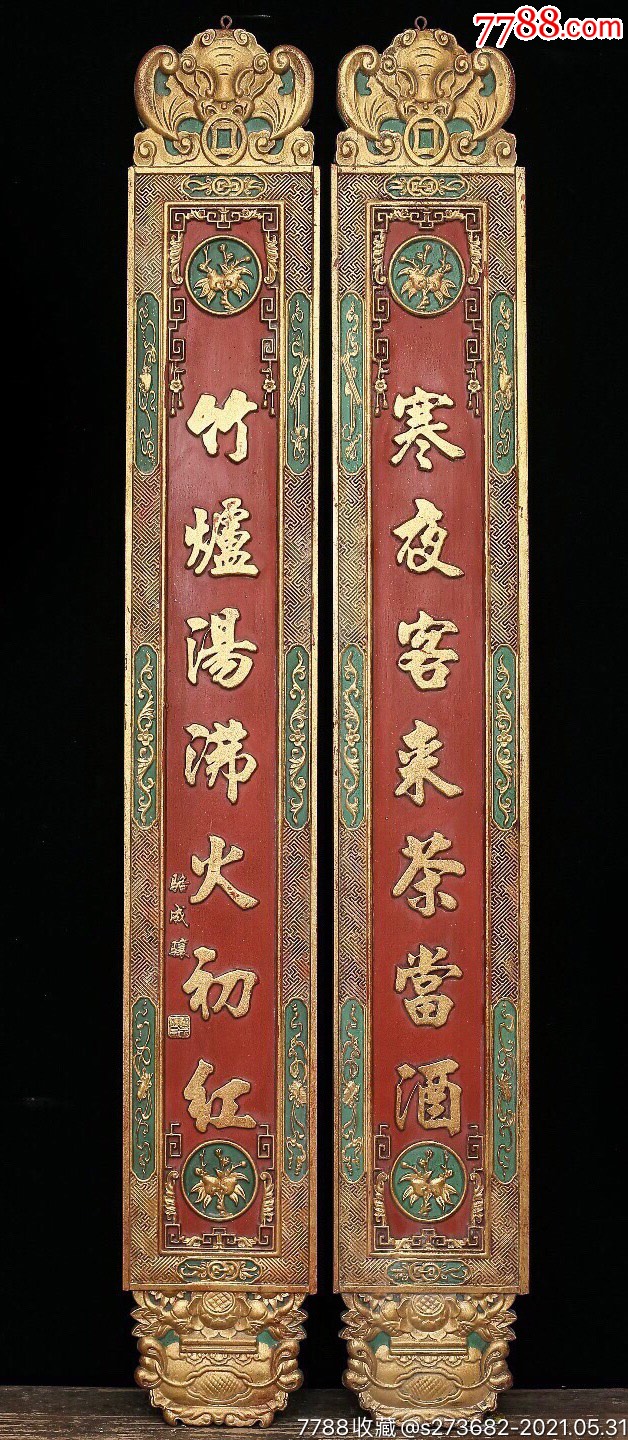 7788.com
寒夜客来茶當酒
竹爐湯沸火初紅
7788收藏@s273682-2021.05.31